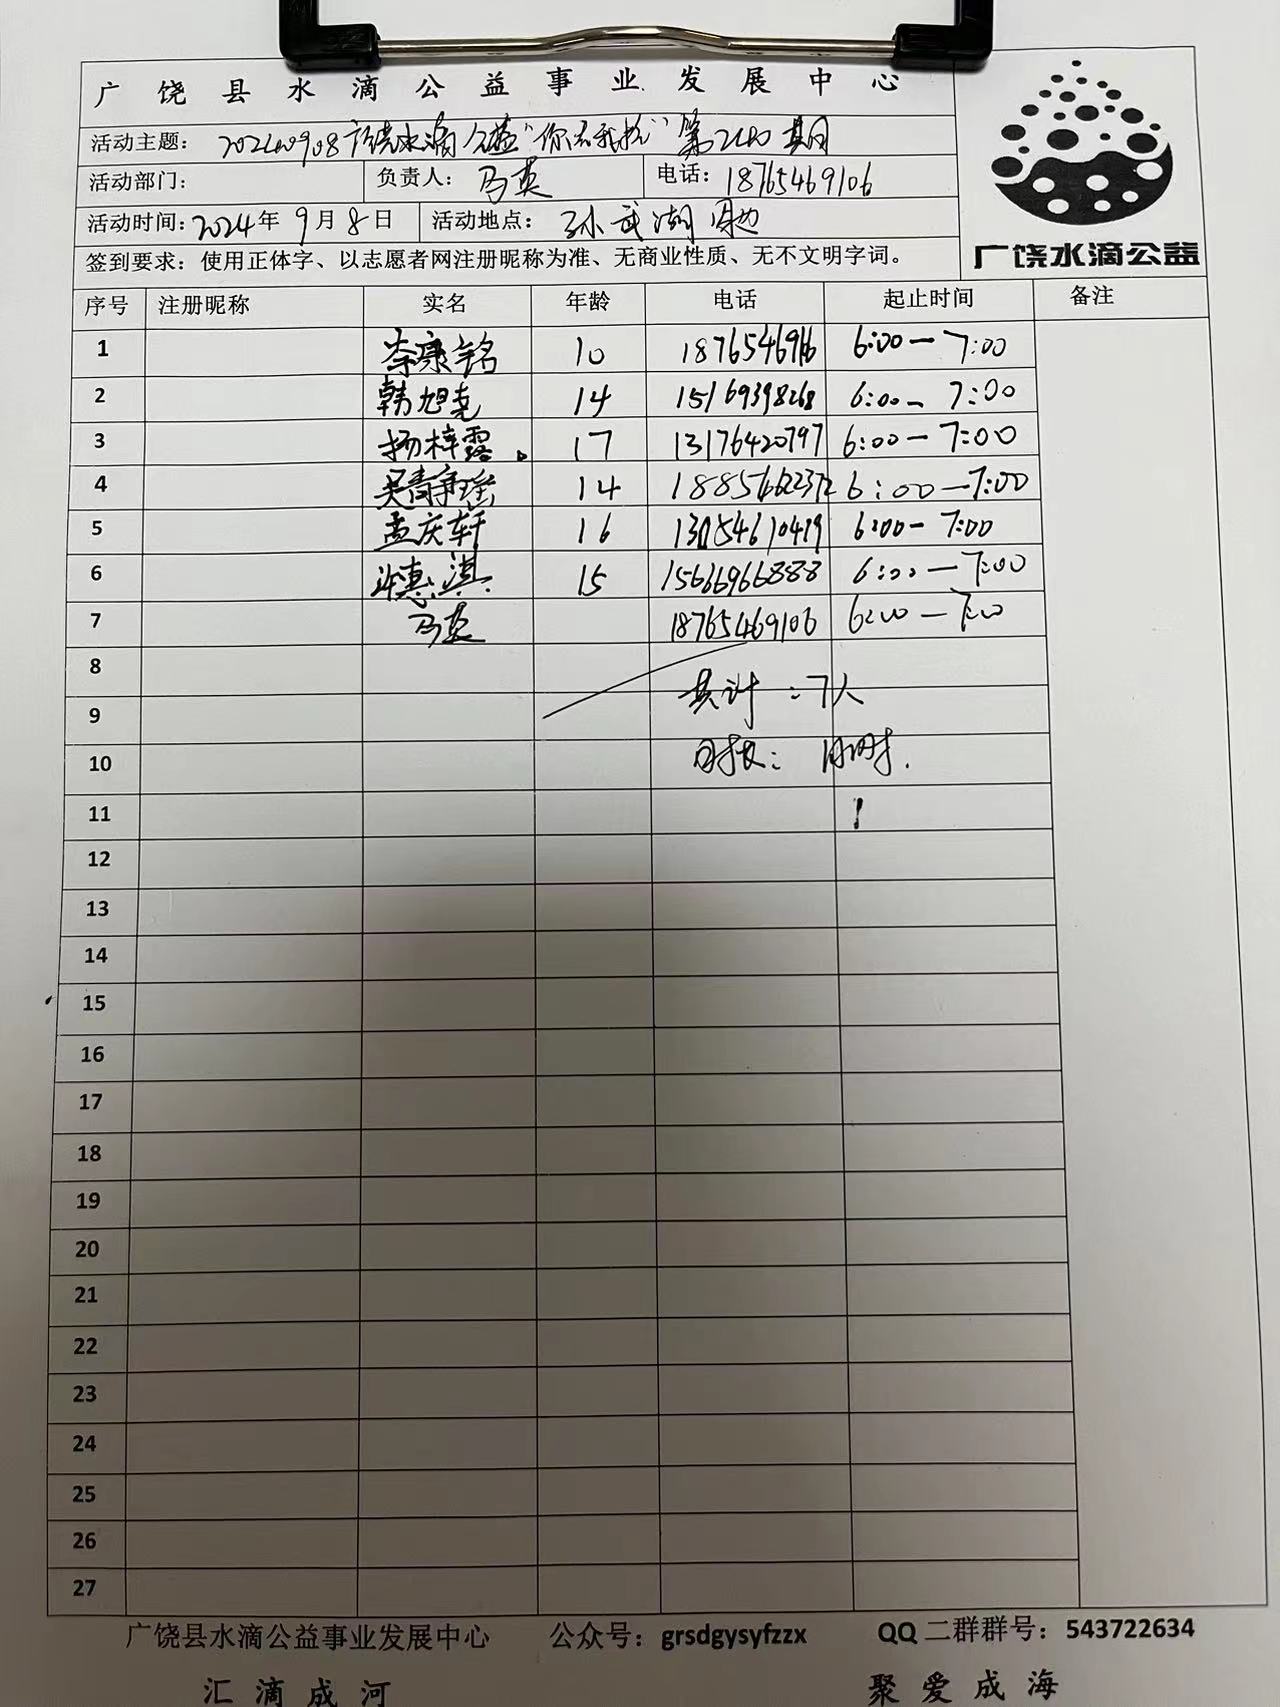 广饶县水滴公益事业发展中心
活动主题：20240908广饶水滴公益“你丢我捡”第2140期
活动部门： 负责人：马英 电话：18765469106
活动时间：2024年9月8日 活动地点：孙武湖周边
签到要求：使用正体字、以志愿者网注册昵称为准、无商业性质、无不文明字词。
广饶水滴公益
序号 注册昵称 实名 年龄 电话 起止时间 备注
1 康铭 10 6:00—7:00
2 韩旭尧 14 15169398268 6:00—7:00
3 杨梓露。 17 13176420797 6:00—7:00
4 吴静瑶 14 18856622372 6:00—7:00
5 孟庆轩 16 6:00—7:00
6 惠淇 15 15666966888 6:00—7:00
7 马英 18765469106 6:00—7:00
8 共计：7人
9
10 时长：1小时.
11
12
13
14
15
16
17
18
19
20
21
22
23
24
25
26
27
广饶县水滴公益事业发展中心 公众号：grsdgysyfzzx QQ二群群号：543722634
汇滴成河 聚爱成海